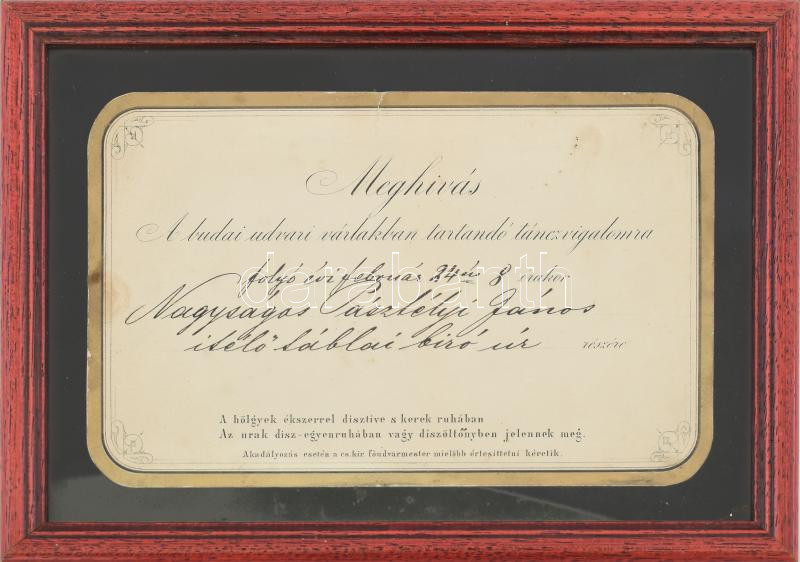 Meghivás
A budai udvari várlakban tartandó tánczvigalomra
folyó évi február 24én 8 órakor
Nagyságos Pásztélyi János
itélő táblai biró úr részére
A hölgyek ékszerrel disztive s kerek ruhában
Az urak disz-egyenruhában vagy diszöltönyben jelennek meg.
Akadályozás esetén a cs. kir. főudvarmester mielőbb értesittetni kéretik.
darabanth